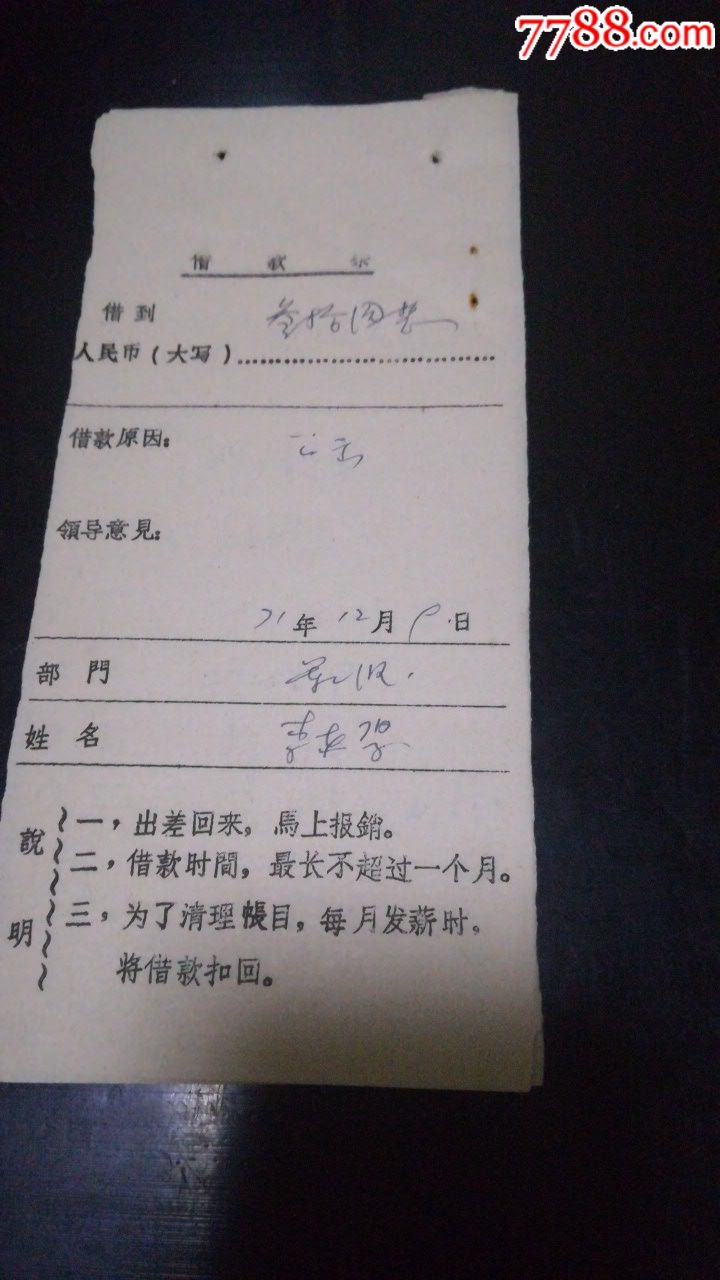 7788.com
借款条
借到 叁拾圆整
人民币(大写)
借款原因:
領导意見:
71年12月9日
部門
姓名 李
說明
一,出差回来,馬上报銷。
二,借款时間,最长不超过一个月。
三,为了清理帳目,每月发薪时,
将借款扣回。